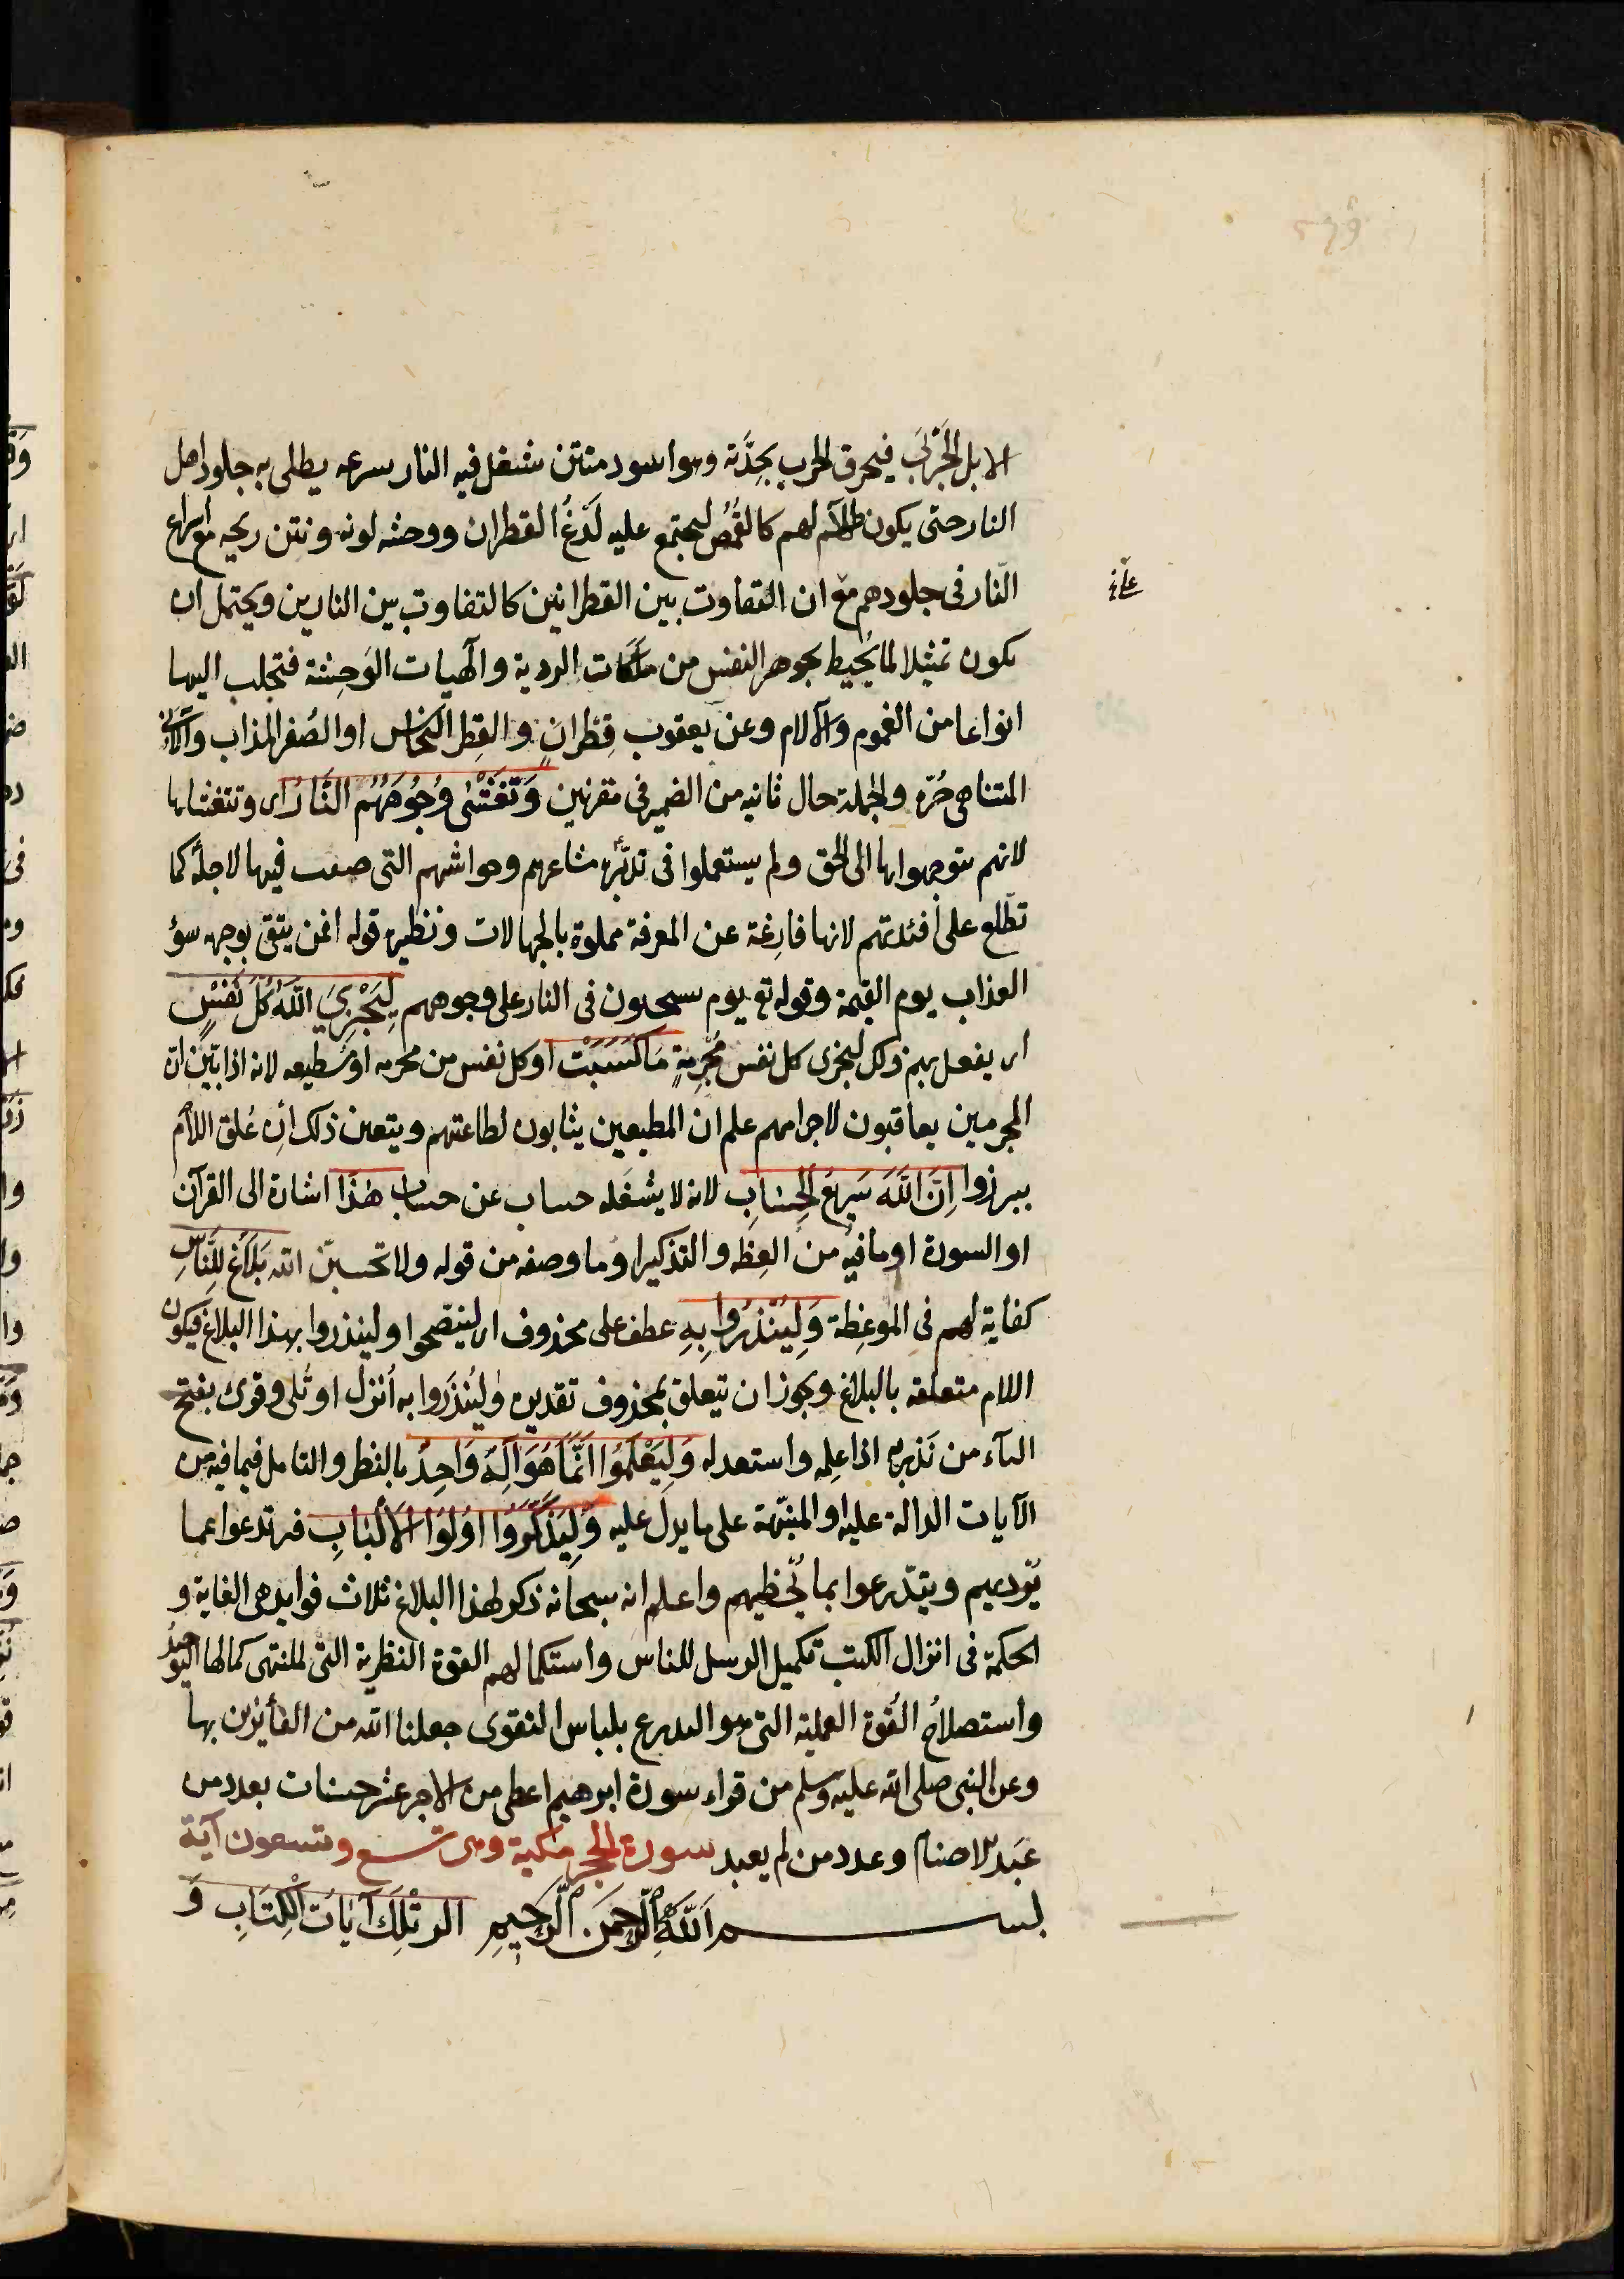 الابل الجَربَى فيحرق الجرب بحِدَّته وهو اسود منتن تشتعل فيه النار بسرعه يطلى به جلود اهل
النار حتى يكون طلاؤه لهم كالقُمُص ليجتمع عليه لَدْغُ القطران ووحشه لونه ونتن ريحه مع اسراع
النّار فى جلودهم مع ان التفاوت بين القطرانين كالتفاوت بين النارين ويحتمل ان
يكون تمثيلا لما يُحيط بجوهر النفس من ملكات الردية والهيات الوَحِشة فتجلب اليها
انواعا من الغموم والآلام وعن يعقوب قِطْرانٍ والقِطر النحاس او الصُفر المذاب والآنى
المتناهى حَرّه والجملة حال ثانيه من الضمير فى مقرنين وَتَغْشٰى وُجُوهَهُمُ النَّارُ اى وتتغشاها
لانهم يتوجهوا بها الى الحق ولم يستعملوا فى تدبّره مشاعرهم وحواسهم التى خلقت فيها لاجله كما
تطّلع على افئدتهم لانها فارِغة عن المعرفة مملوة بالجهالات ونظيره قوله افمن يتقى بوجهه سؤ
العذاب يوم القيمة وقوله تع يوم يسحبون فى النار على وجوههم لِيَجْزِيَ اللّٰهُ كُلَّ نَفْسٍ
اى يفعل بهم ذلك ليجزى كل نفس مُجْرِمةٍ مَا كَسَبَتْ او كل نفس من مجرمه او مطيعه لانه اذا بيّن ان
المجرمين يعاقبون لاجرامهم علم ان المطيعين يثابون لطاعتهم ويتعين ذلك اِن عُلق اللام
ببرزوا اِنَّ اللّٰهَ سَرِيعُ الحِسَابِ لانه لا يشغله حساب عن حساب هٰذَا اشارة الى القرآن
او السورة او ما فيه من العِظه والتذكير او ما وصفه من قوله ولا تحسبنّ الله بَلَاغٌ لِلنَّاسِ
كفاية لهم فى الموعِظة وَلِيُنْذَرُوا بِهِ عطف على محذوف اى لينصحوا ولينذروا بهذا البلاغ فيكون
اللام متعلقه بالبلاغ ويجوز ان يتعلق بمحذوف تقديره ولِيُنذَروا به اُنزل او تُلى وقرئ بفتح
الياء من نَذِر به اذا علِمه واستعد له وَلِيَعْلَمُوا اَنَّمَا هُوَ اِلٰهٌ وَاحِدٌ بالنظر والتامل فيما فيه من
الآيات الدالة عليه او المنبّهة على ما يدل عليه وَلِيَذَّكَّرَ اُولُوا الاَلْبَابِ فيرتدعوا عما
يُرْديهم ويتدّرعوا بما يُحظيهم واعلم انه سبحانه ذكر لهذا البلاغ ثلاث فوايد هى الغاية و
الحكمة فى انزال الكتب تكميل الرسل للناس واستكمالهم القوة النظرية التى لمنتهى كمالها التوحيد
واستصلاحُ القُوة العملية التى هو التدرع بلباس التقوى جعلنا الله من الفائزين بها
وعن النبى صلى الله عليه وسلم من قراء سورة ابرهيم اعطى من الاجر عشر حسنات بعدد من
عَبَد الاصنام وعدد من لم يعبد سورة الحجر مكية وهى تسع وتسعون آية
بســـم اللّٰهِ الرَّحمنِ الرَّحِيمِ الر تِلْكَ آيَاتُ الكِتَابِ وَ